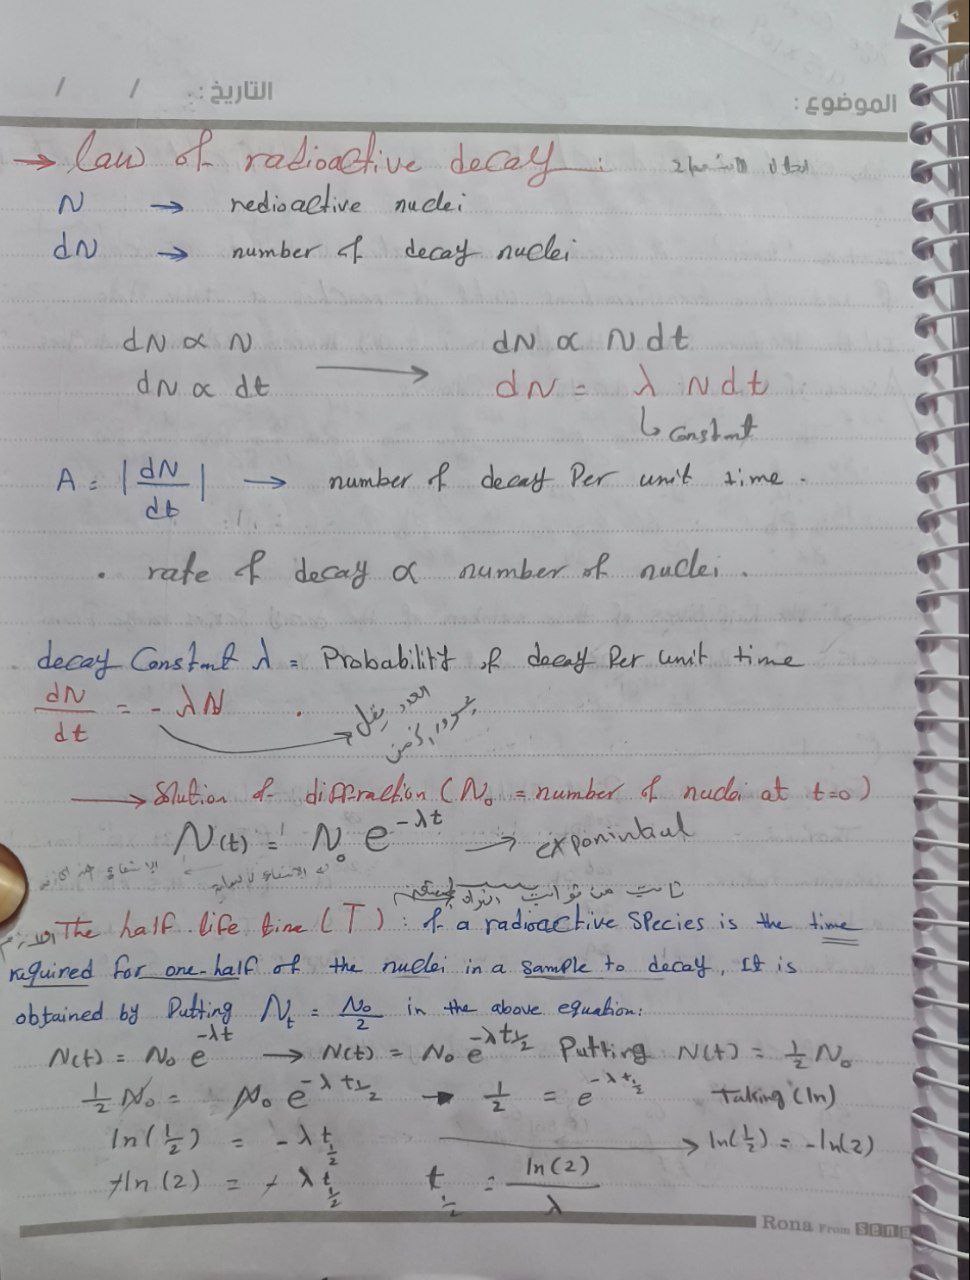 التاريخ: / /
الموضوع:
→ law of radioactive decay :
N → redioactive nuclei
dN → number of decay nuclei
dN ∝ N → dN ∝ N dt
dN ∝ dt dN = λ N dt
↳ Constant
A = |dN/dt| → number of decay Per unit time.
. rate of decay ∝ number of nuclei.
decay Constant λ = Probability of decay Per unit time
dN/dt = - λN . العدد يقل
→ Solution of diffraction (N₀ = number of nuclei at t=0)
N(t) = N₀ e^-λt → exponintial
ثابت من ثوابت
The half life time (T) : of a radioactive species is the time
required for one-half of the nuclei in a sample to decay, It is
obtained by Putting Nt = N₀/2 in the above equation:
N(t) = N₀ e^-λt → N(t) = N₀ e^-λt½ Putting N(t) = ½ N₀
½ N₀ = N₀ e^-λt½ → ½ = e^-λt½ Taking (ln)
ln(½) = -λt½ → ln(½) = -ln(2)
-ln(2) = -λt½ t½ = ln(2)/λ
Rona From sena